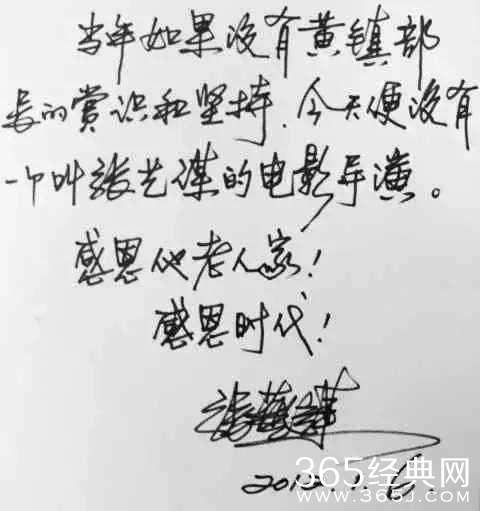 当年如果没有黄镇部
长的赏识和坚持、今天便没有
一个叫张艺谋的电影导演。
感恩他老人家！
感恩时代！
张艺谋
365经典网
www.365J.com